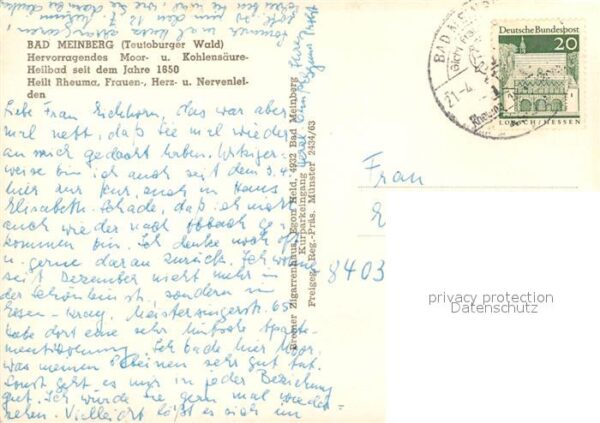 BAD MEINBERG (Teutoburger Wald)
Hervorragendes Moor- u. Kohlensäure-
Heilbad seit dem Jahre 1650
Heilt Rheuma, Frauen-, Herz- u. Nervenlei-
den
Liebe Frau Eichhorn, das war aber
mal nett, daß Sie mal wieder
an mich gedacht haben. Witziger-
weise bin ich auch seit dem 3.4.
hier zur Kur, auch in Haus
Elisabeth. Schade, daß ich nicht
auch wieder nach ge-
kommen bin. Ich denke noch oft
u. gerne daran zurück. Ich wohne
seit Dezember nicht mehr in
der sondern in
Essen-Kray, Meistersingerstr. 65
habe dort eine sehr hübsche Aparte-
mentwohnung. Ich bade hier Moor,
was meinen Beinen sehr gut tut.
Sonst geht es mir in jeder Beziehung
gut. Ich würde sie gern mal wieder
sehen. Vielleicht läßt es sich im
Bremer Zigarrenhaus, Egon Held, 4932 Bad Meinberg
Kurparkeingang
Freigeg. Reg.-Präs. Münster 2434/63
BAD MEINBERG
21.-4.
Deutsche Bundespost
20
LORSCH/HESSEN
Frau
E
8403
privacy protection
Datenschutz